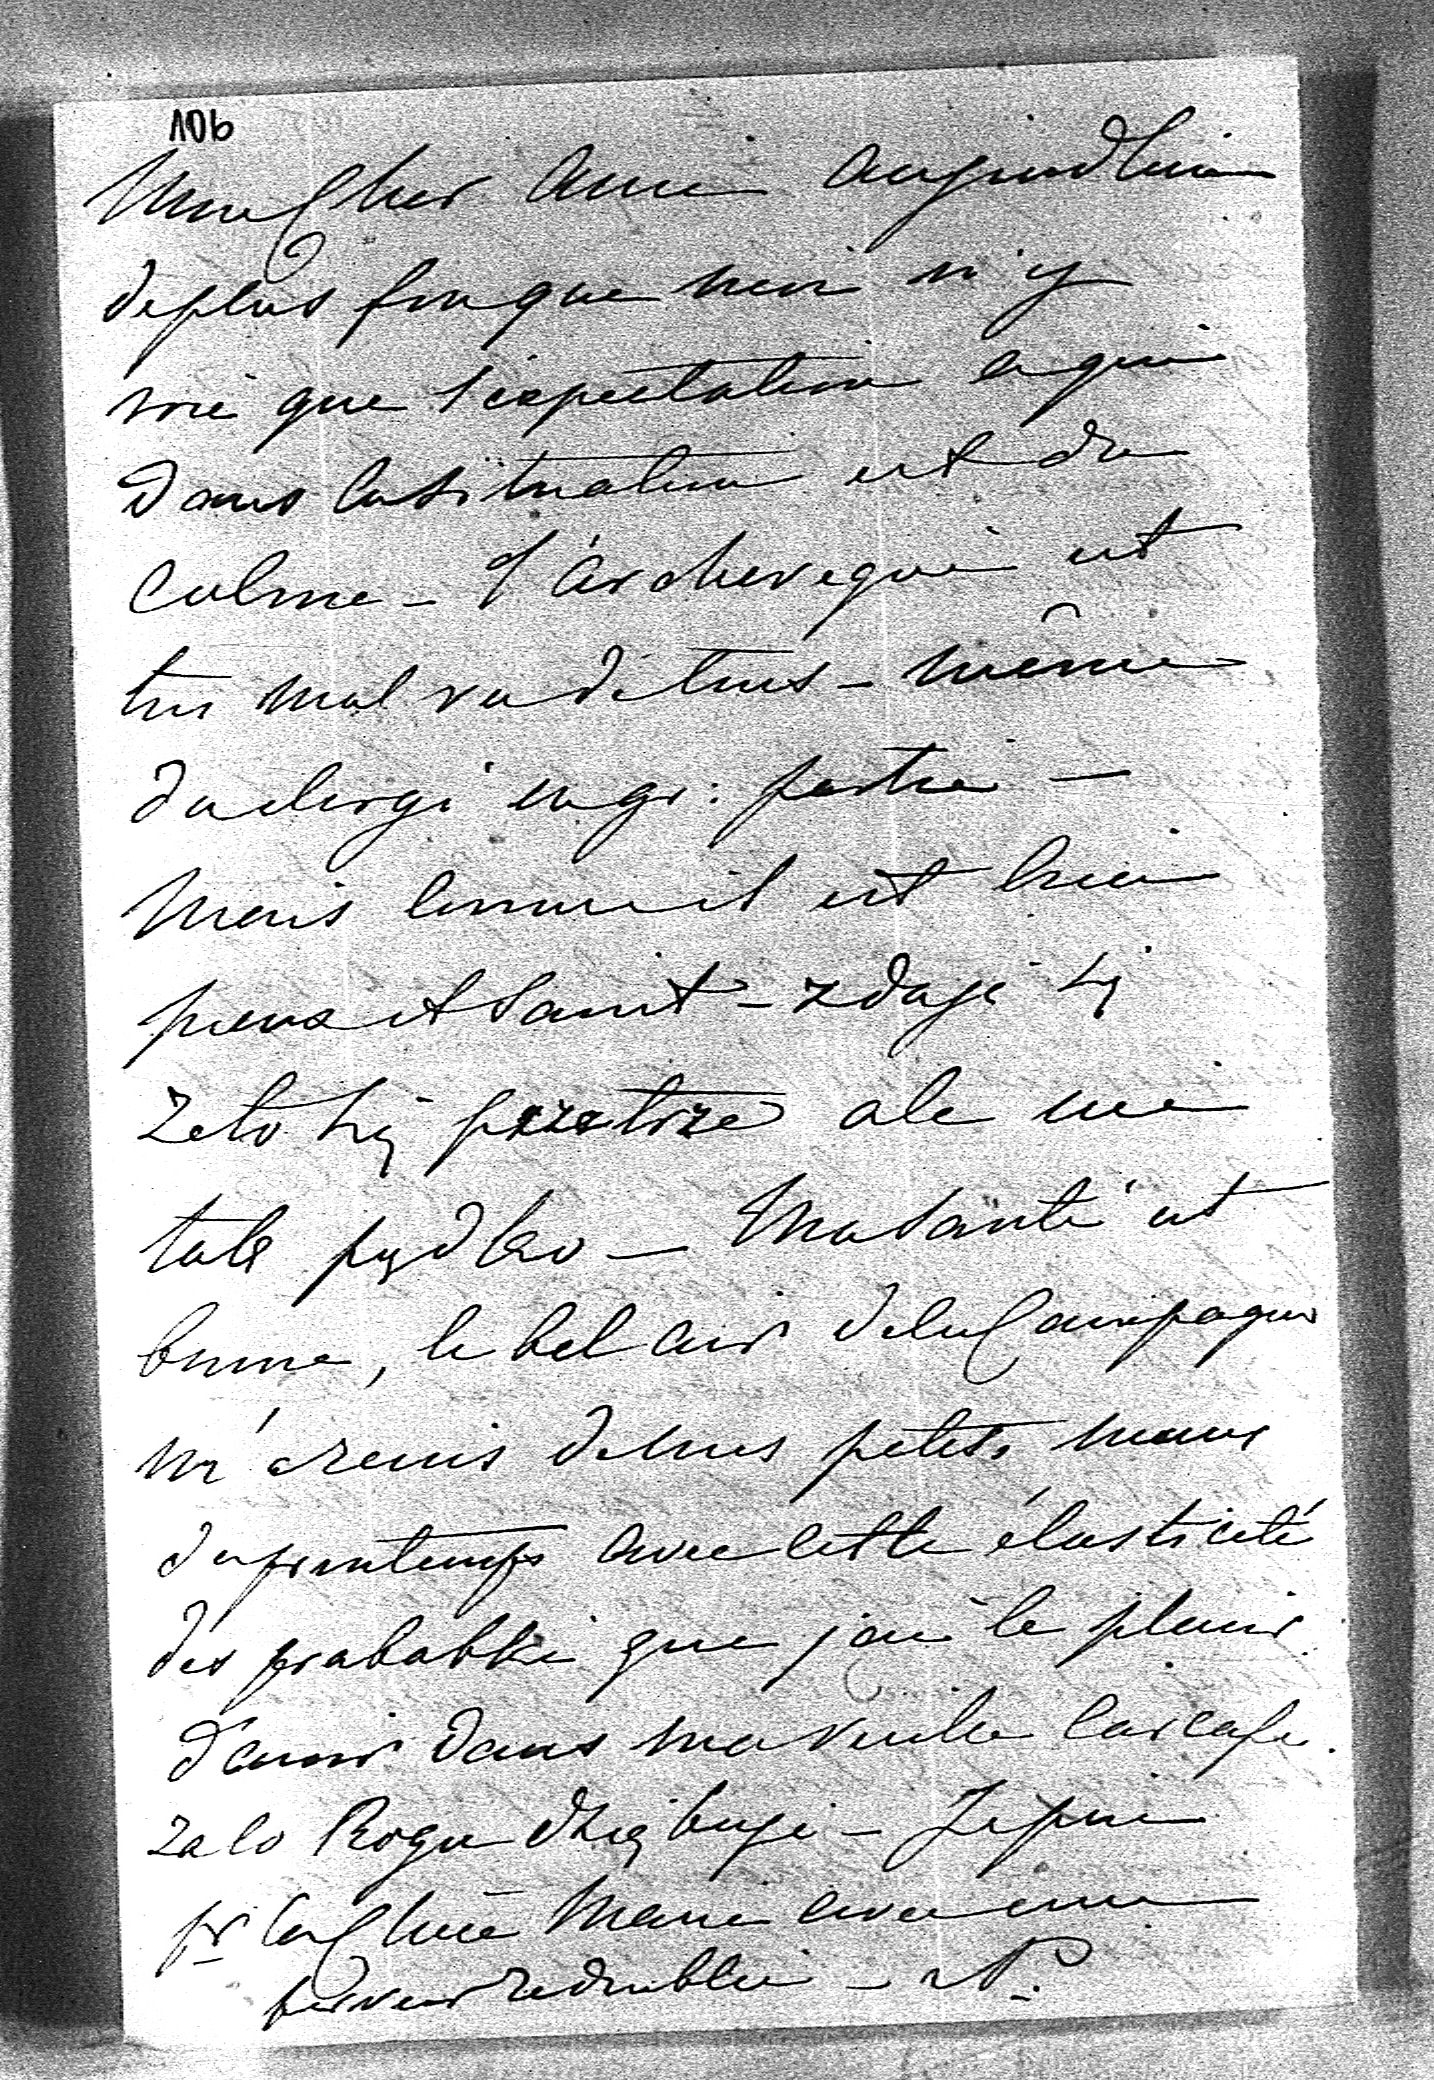 106
Mon Cher Ami aujourdhui
de plus fin que moi n'y
voie que l'expectation ce qui
dans la situation est du
calme - l'archeveque est
tres mal vu de tous - même
du clergé en gr: partie -
Mais comme il est bien
pieux et saint - zdaje się
ze to się przetrze ale nie
tak prędko - Ma santé est
bonne, le bel air de la Campagne
m'a remis de mes petits maux
du printemps avec cette élasticité
des prababki que j'ai le plaisir
d'avoir dans ma vieille carcasse.
za co Bogu dziękuje - Je prie
pr la Chere Marie avec une
ferveur redoublée -